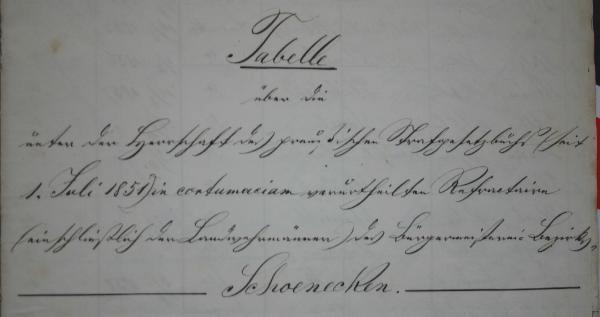 Tabelle
über die
unter der Herrschaft des preußischen Strafgesetzbuchs (seit
1. Juli 1851) in contumaciam verurtheilten Refractaire
(einschließlich der Landwehrmänner) des Bürgermeisterei-Bezirks
Schoenecken.